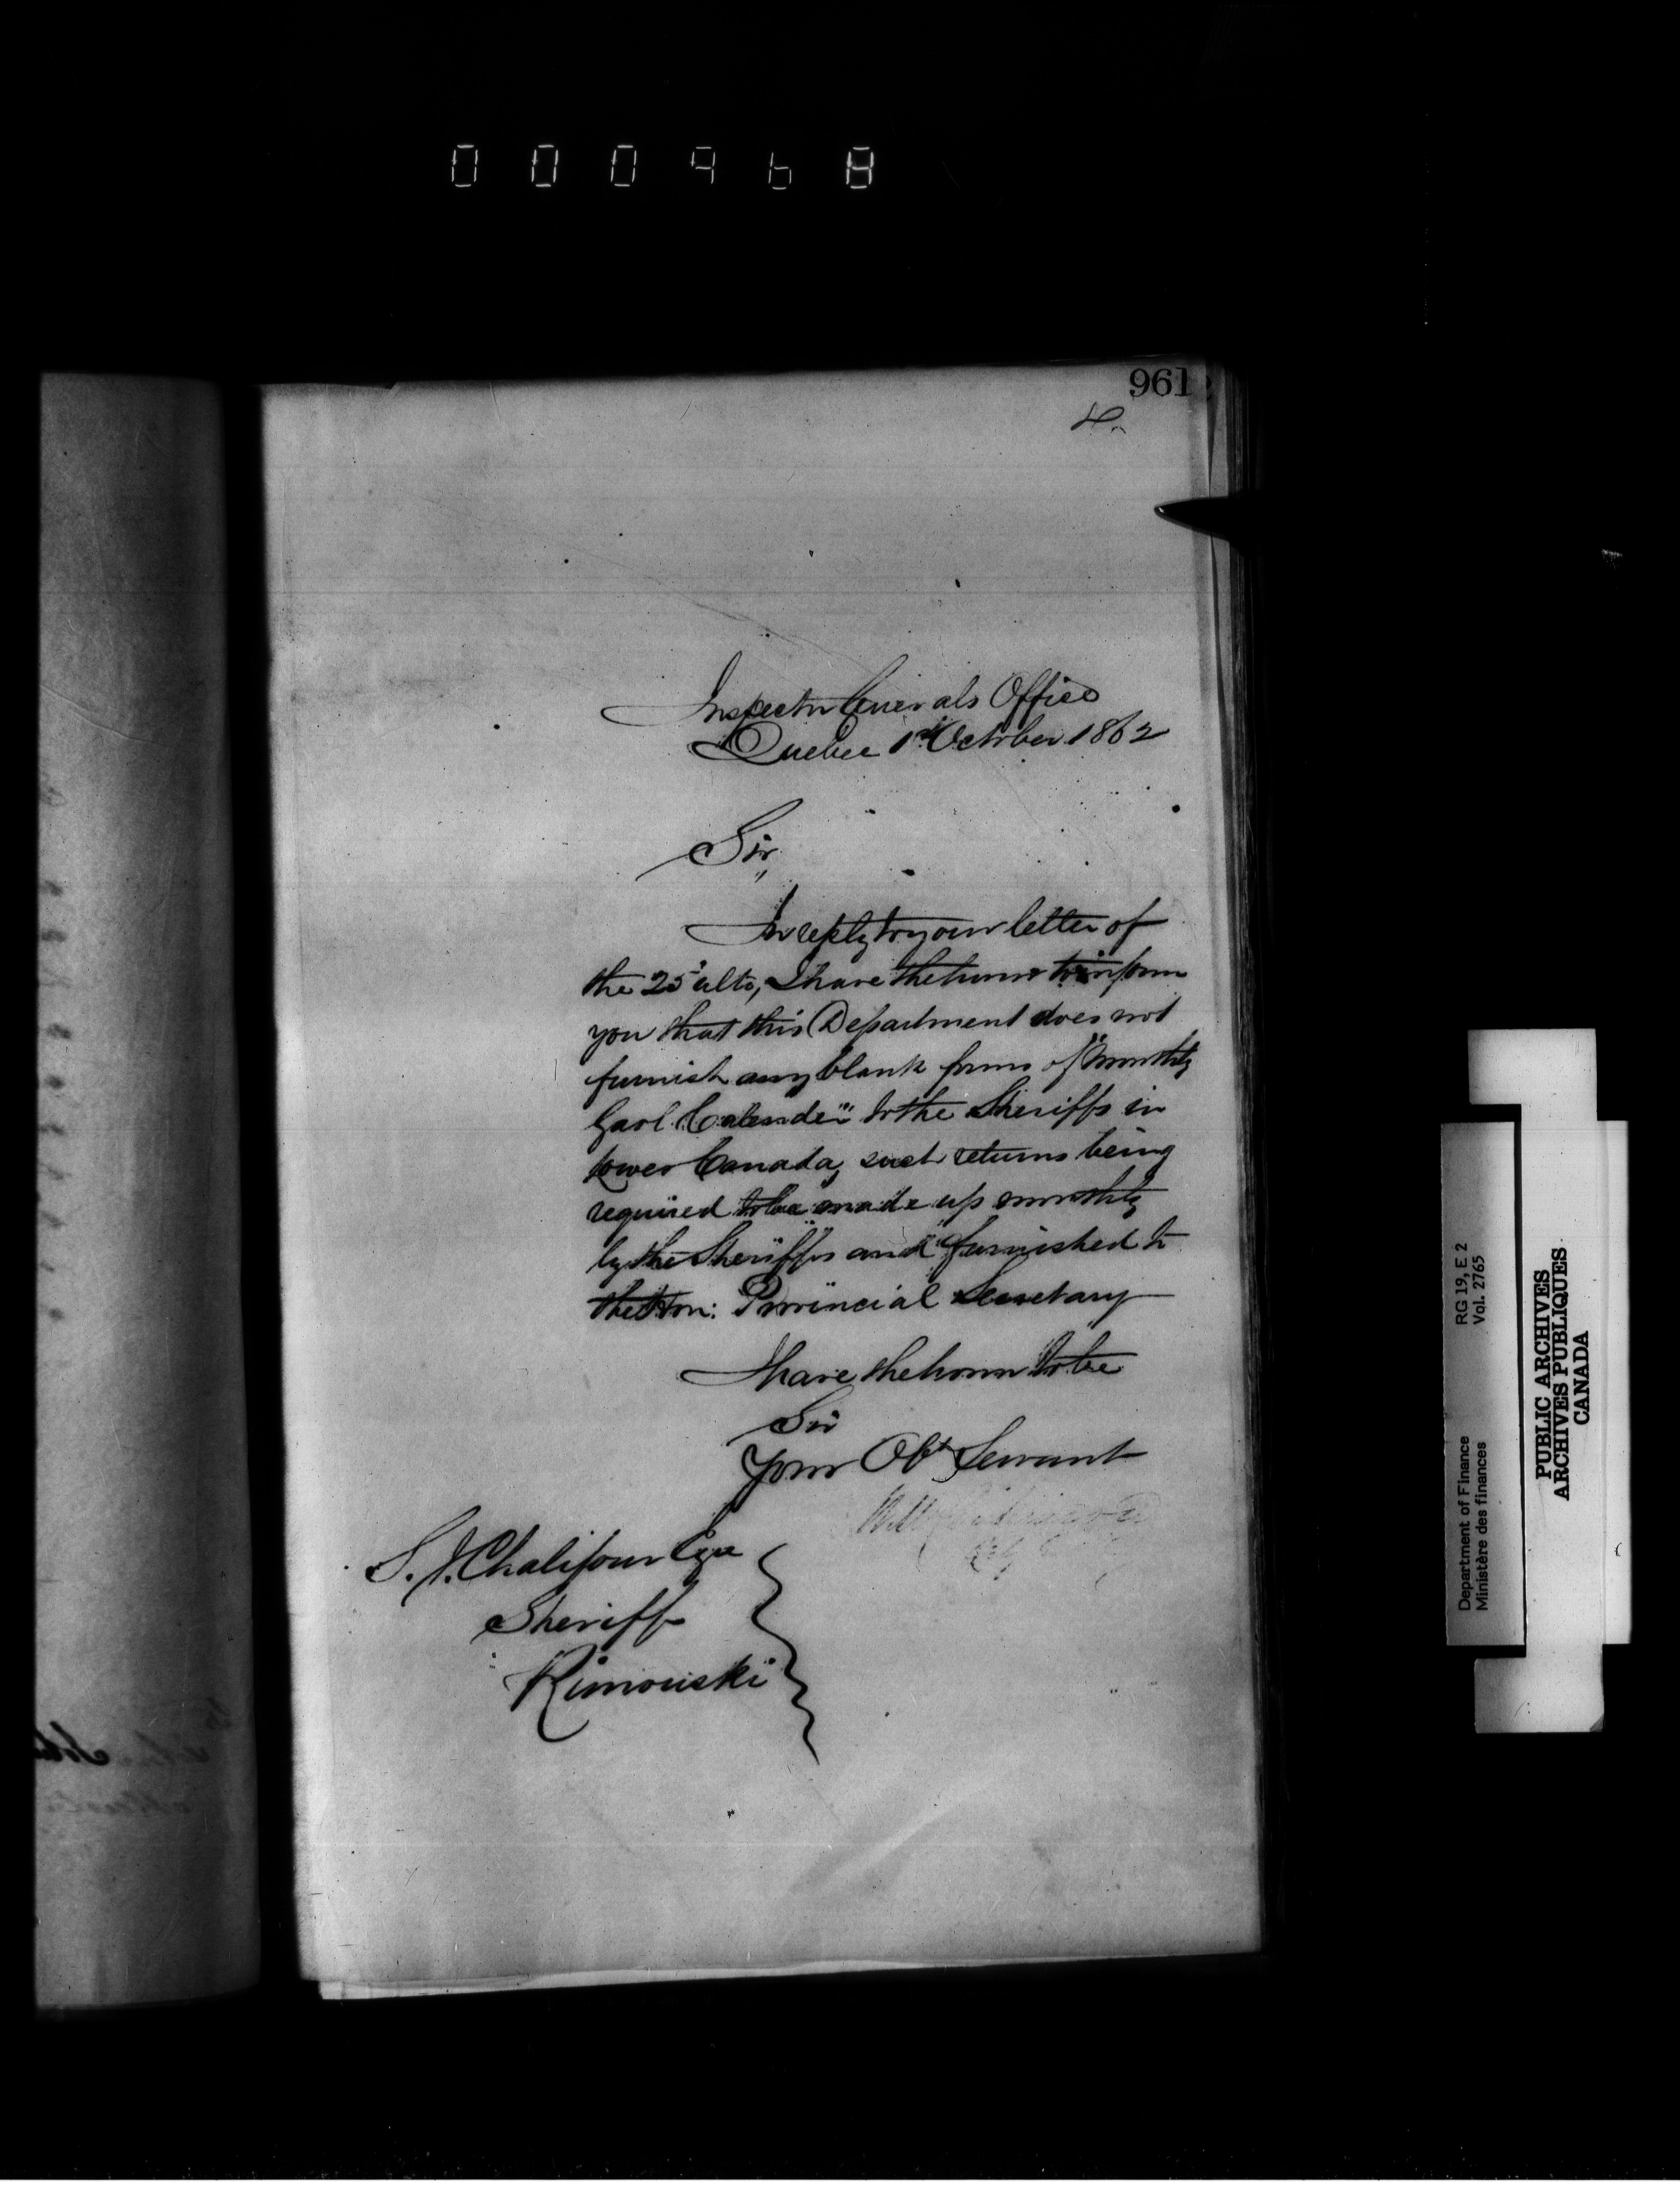 000968
961
Inspector Generals Office
Quebec 1st October 1862
Sir,
In reply to your letter of
the 25 ulto, I have the honor to inform
you that this Department does not
furnish any blank forms of "Monthly
Gaol Calender" to the Sheriffs in
Lower Canada, such returns being
required to be made up monthly
by the Sheriffs and furnished to
the Hon: Provincial Secretary
I have the honor to be
Sir
Your Obt Servant
S. J. Chalifour Esqe
Sheriff
Rimouski
RG 19, E 2
Vol. 2765
Department of Finance
Ministère des finances
PUBLIC ARCHIVES
ARCHIVES PUBLIQUES
CANADA